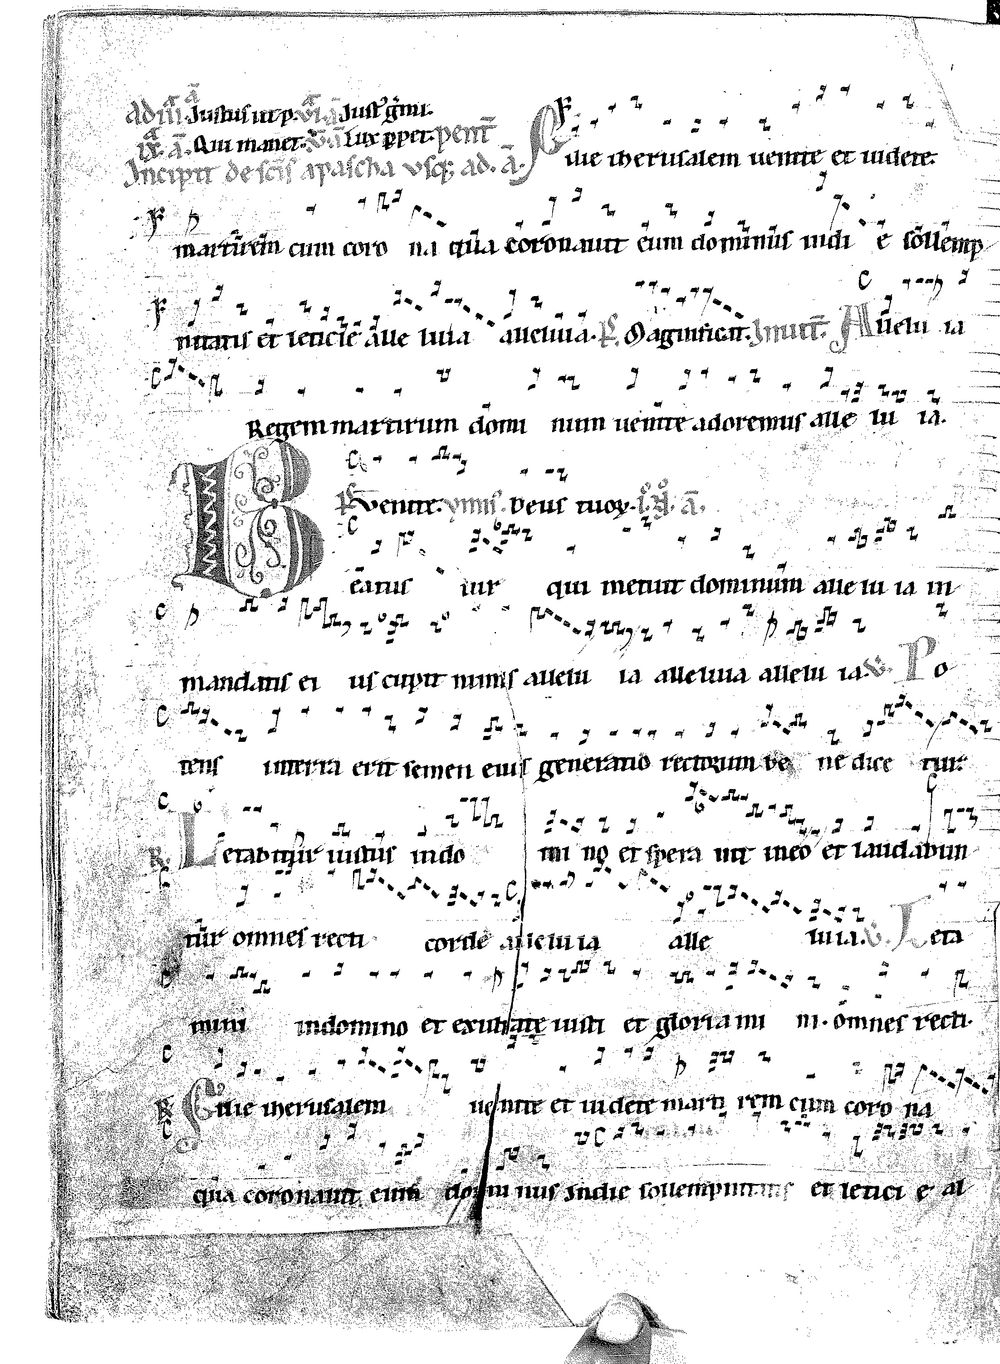 ad iii a Justus ut p. vi a Just' gmi.
ix. a. Qui manet. v. a Lux ppet. pent
Incipit de scis a pascha usq; ad. a. Filie iherusalem uenite et uidete.
martirem cum coro na qua coronauit eum dominus indi e sollemp
nitatis et leticie alle luia alleluia. Ps. Magnificat. Inuit. Allelu ia
Regem martirum domi num uenite adoremus alle lu ia.
Ps Venite. ymnus. Deus tuor. i. N. a.
Beatus uir qui metuit dominum alle lu ia in
mandatis ei us cupit nimis allelu ia alleluia allelu ia. v. Po
tens interra erit semen eius generatio rectorum be ne dice tur
R. Letabitur iustus indo mi no et spera uit ineo et laudabun
tur omnes recti corde alleluia alle luia. v. Leta
mini indomino et exultate iusti et gloriami ni. omnes recti.
R Filie iherusalem uenite et uidete marti rem cum coro na
qua coronauit eum domi nus Indie sollempnitatis et letici e al